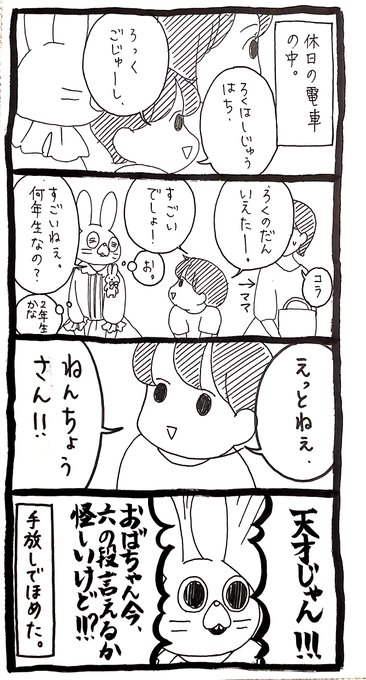 休日の電車
の中。
ろくはしじゅう
はち、
ろっく
ごじゅーし、
コラ
→ママ
ろくのだん
いえたー。
すごい
でしょ！
お。
すごいねぇ。
何年生なの？
2年生
かな
えっとねぇ、
ねんちょう
さん！！
天才じゃん！！！
おばちゃん今、
六の段言えるか
怪しいけど！！？
手放しでほめた。